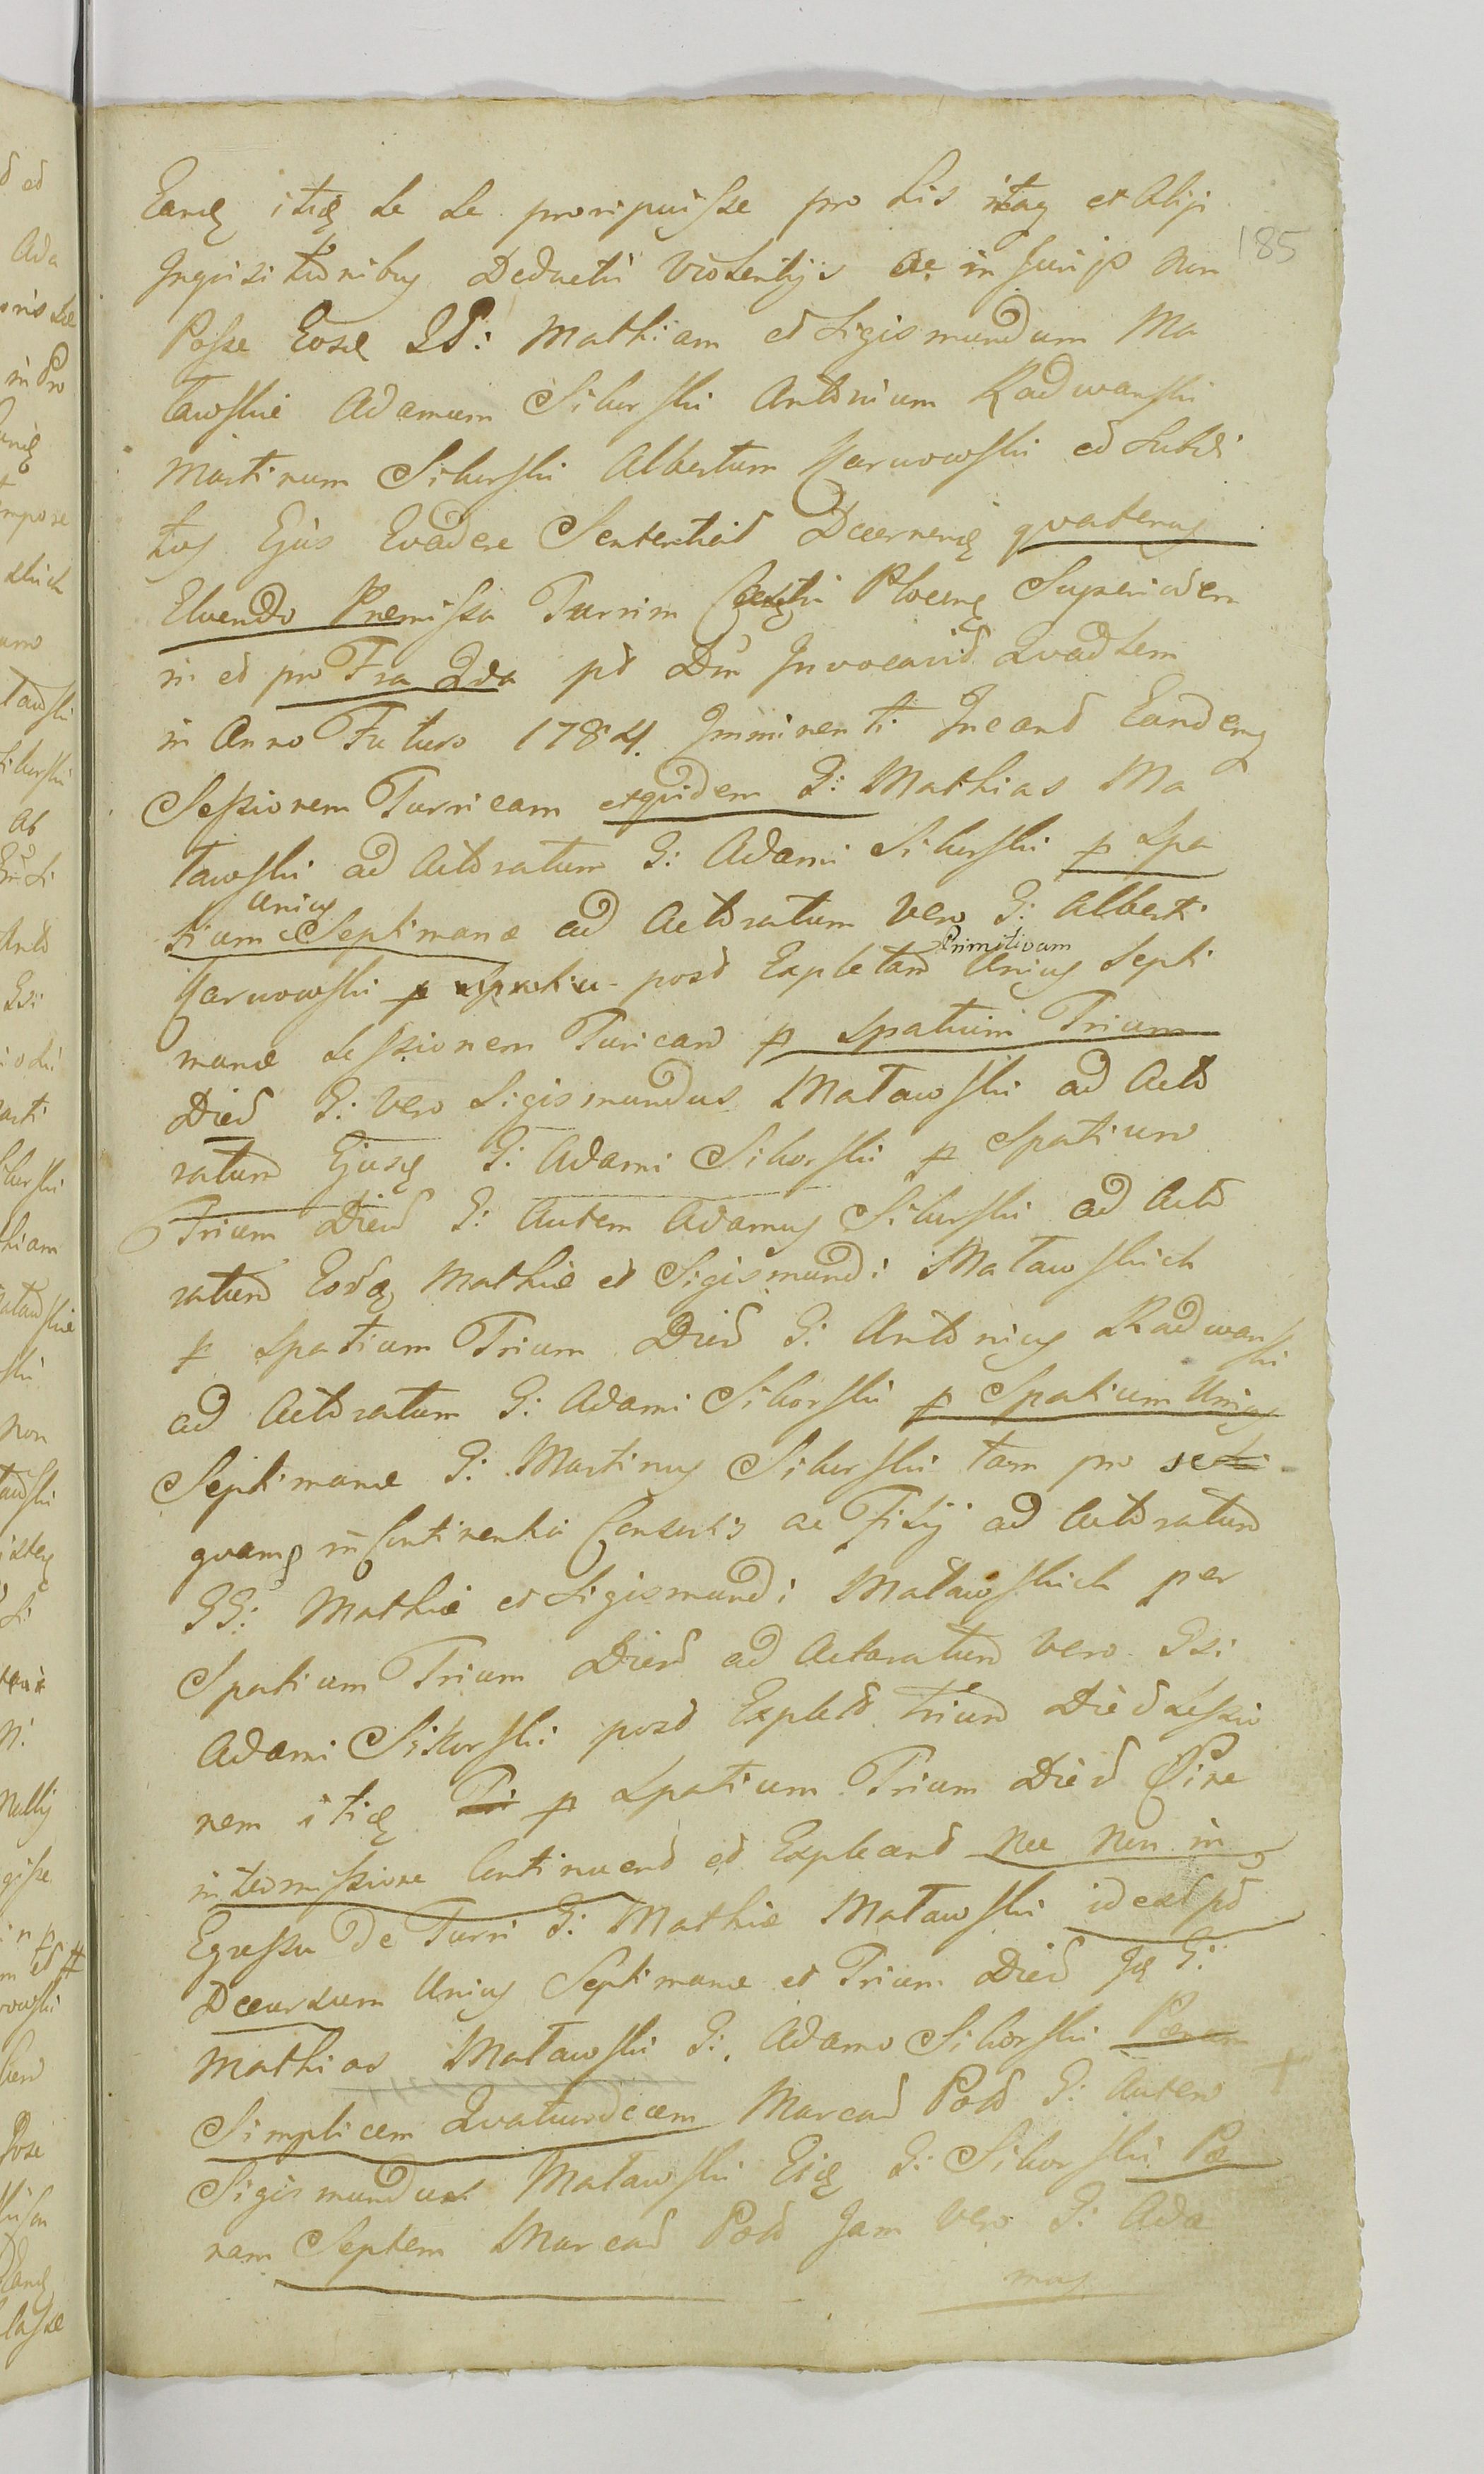 Eandę itidę se se proripuisse pro his itaq et Alijs
185
Inquisitionibus Deductis Violentijs ac injurijs non
Posse Eosdę GG: Mathiam et Sigismundum Ma
tawskie Adamum Sikorski Antonium Radwanski
Martinum Sikorski Albertum Karwowski et Subdi
tos Ejus Evadere Sententiad Decernendę quatenus
Eluendo Præmissa Turrim Castri Plocensę Superiorem
in et pro Fra 2da pt Dm Invocavid Quadlem
in Anno Futuro 1784. Imminenti Incand Eandemq
Sessionem Turricam etquidem G: Mathias Ma
tawski ad Actoratum G: Adami Sikorski p Spa
unius
tium Septimanæ ad Actoratum Vero G: Alberti
Primitivam
Karwowski post Expletam Unius Septi
manæ Sessionem Turicam p Spatium Trium
Died G: Vero Sigismundus Matawski ad Acto
ratum Ejusdę G: Adami Sikorski p Spatium
Trium Died G: Autem Adamus Sikorski ad Acto
ratum Eordę Mathiæ et Sigismundi Matawskich
p Spatium Trium Died G: Antonius Radwanski
ad Actoratum G: Adami Sikorski p Spatium Unius
Septimanæ G: Martinus Sikorski tam pro se
quamq in Continentia Consortis ac Filij ad Actoratum
GG: Mathiæ et Sigismundi Matawskich per
Spatium Trium Died ad Actoratum Vero Gsi
Adami Sikorski post Expletd trium Died Sessio
nem itidę Tri p Spatium Trium Died Sine
intermissione Continuend et Expleand nec non in
Egressu De Turri G: Mathiæ Matawski idest pt
Decursum Unius Septimanæ et Trium Died Idę G:
Mathias Matawski G: Adamo Sikorski Penam
Simplicem Quatuordecem Marcad Pold G: Autem
Sigismundus Matawski Eidę G: Sikorski Pæ
nam Septem Marcad Pold Jam Vero G: Ada
mus